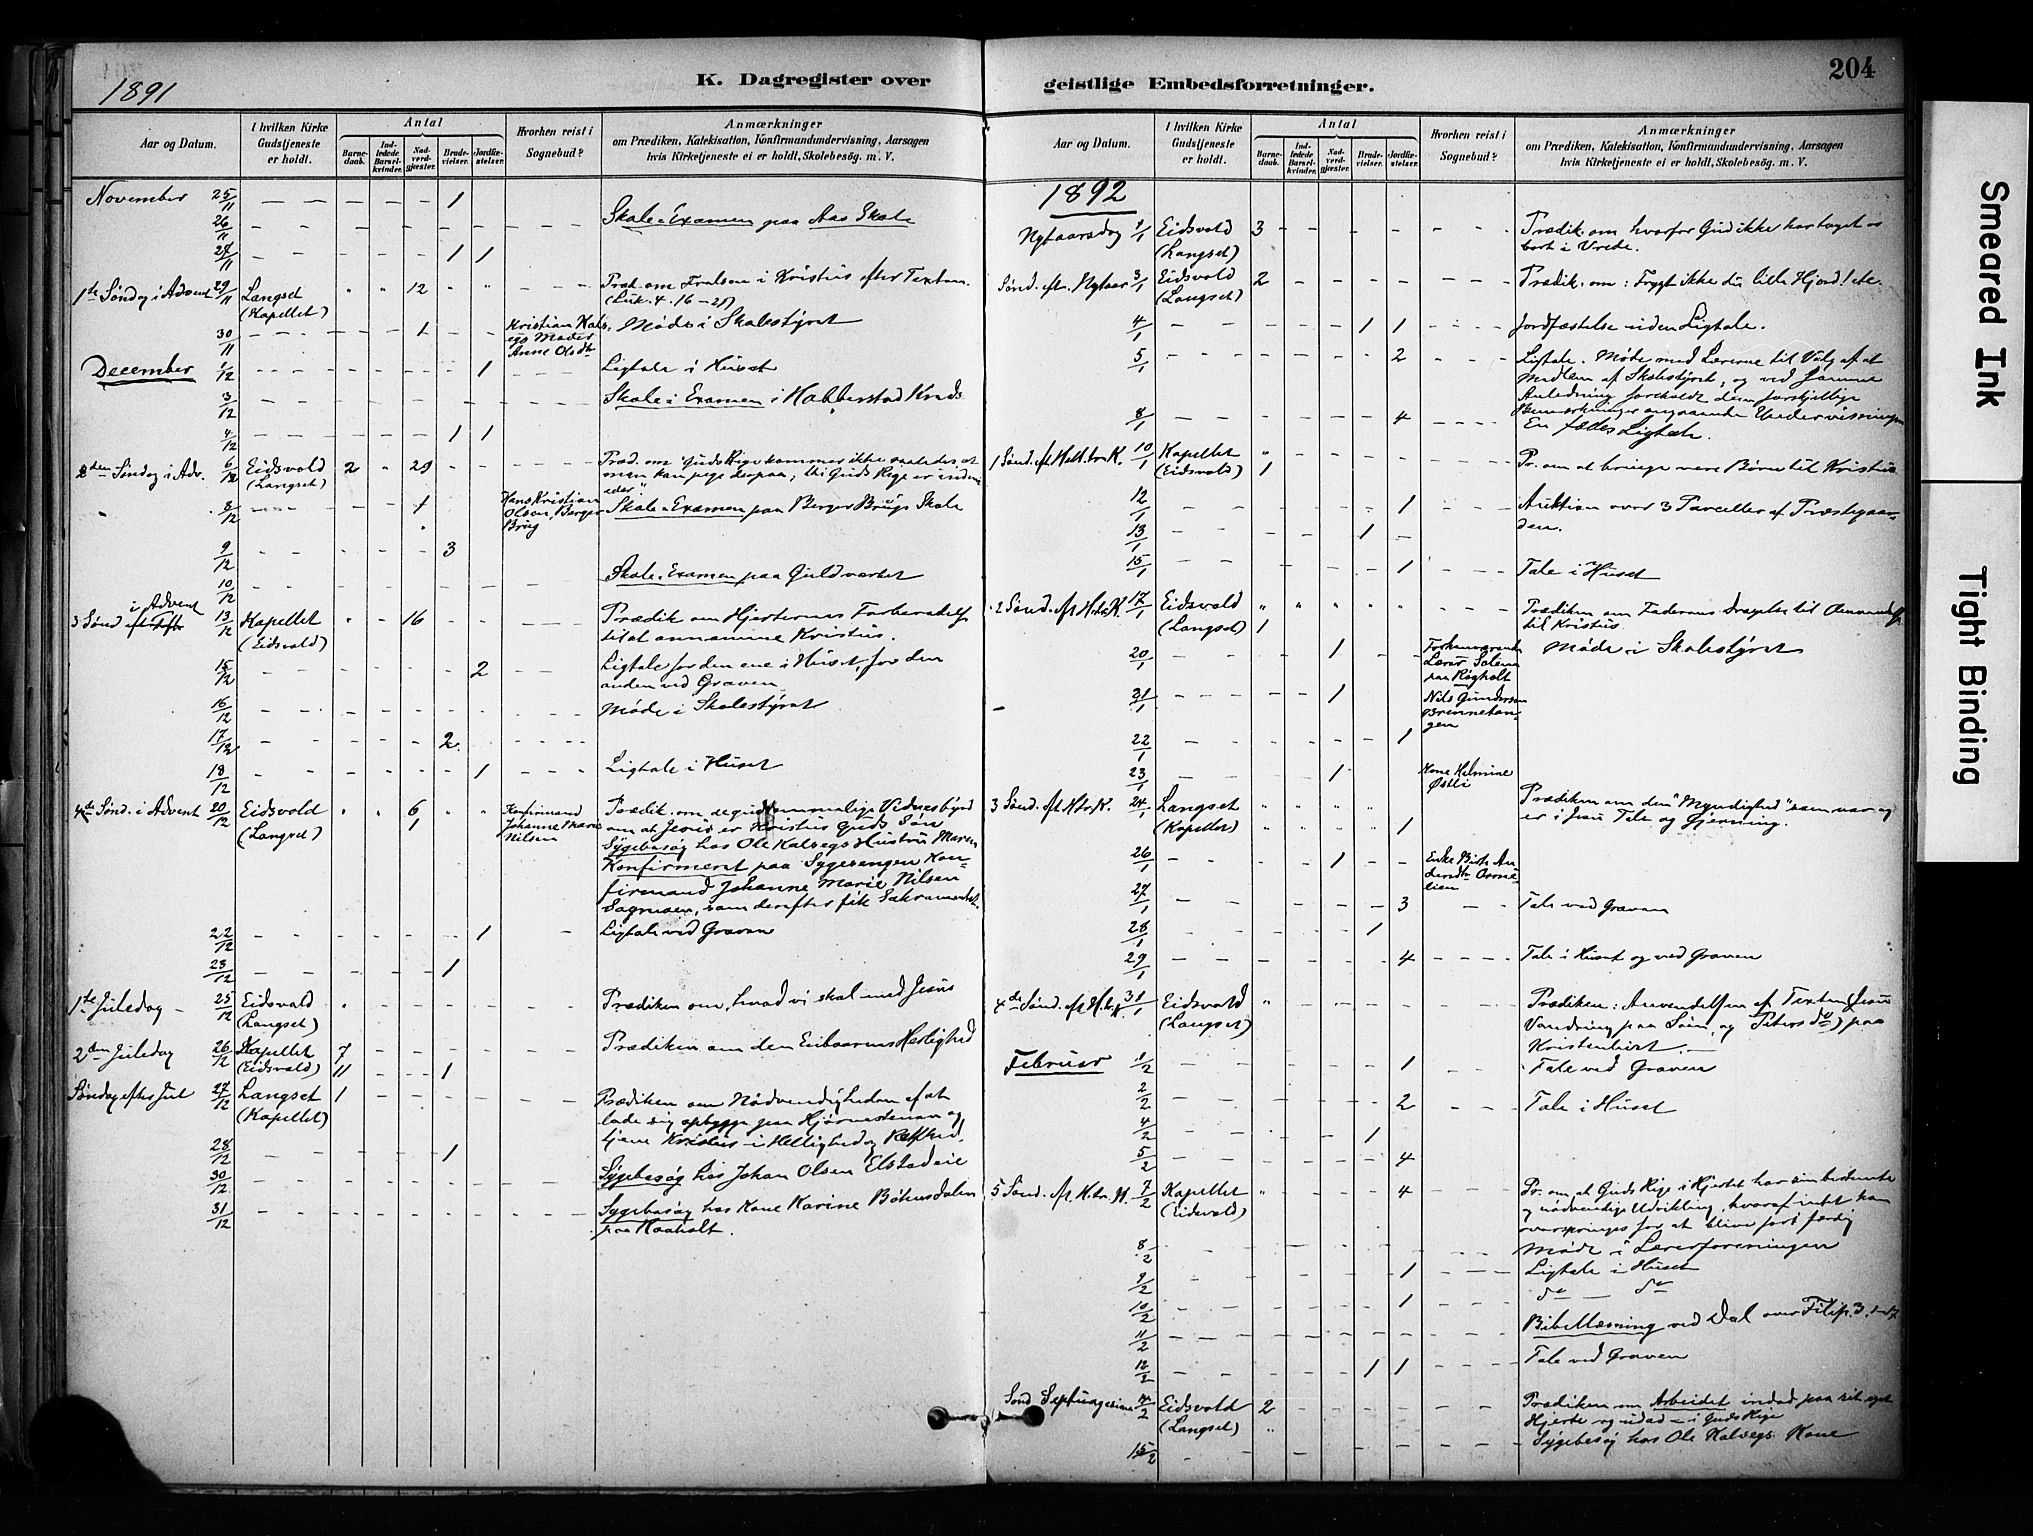 204
1891
K. Dagregister over
Aar og Datum.
I hvilken Kirke Gudstjeneste er holdt.
Antal
Barne-daab.
Ind-ledede Barsel-kvinder.
Nad-verd-gjæster.
Brude-vielser.
Jordfæ-stelser.
Hvorhen reist i Sognebud?
Anmærkninger
om Prædiken, Katekisation, Konfirmandundervisning, Aarsagen
hvis Kirketjeneste ei er holdt, Skolebesøg. m. V.
November 25/11 — — — — — 1
26/11 — — — — — — — — — Skole-Examen paa Aas Skole
27/11 — — — — 1 1
1ste Søndag i Advent 29/11 Langset 12 Præd. om Frelsen i Kristus efter Texten
(Kapellet) (Luk. 4. 16-
30/11 — — — — 1 — — Kristian Møde i Skolestyret
Moder
Anne Olsdtr
December 1/12 — — — — — — 1 Ligtale i Huset
3/12 — — — — — — Skole-Examen i Habberstad Kreds
4/12 — — — — 1 1
2den Søndag i Adv. 6/12 Eidsvold 2 29 Præd. om Guds Rige kommer ikke saaledes at
(Langset) man kan pege derpaa; thi Guds Rige er inden i
eder."
8/12 — — — — 1 Hans Kristian Skole-Examen paa Berger Brugs Skole
Olsen, Berger
Brug
9/12 — — — — — 3
10/12 — — — — Skole-Examen paa Guldverket
i Advent
3 Sønd 13/12 Kapellet 16 Prædik om Hjerternes Forberedelse
(Eidsvold) til at annamme Kristus.
15/12 — 2 Ligtale for den ene i Huset, for den
anden ved Graven
16/12 — — — — Møde i Skolestyret
17/12 — — — — 2
18/12 — — — — — 1 Ligtale i Huset
4de Sønd. i Advent 20/12 Eidsvold 6 Konfirmand Prædik. om
(Langset) 1 Johanne Marie om at Jesus er Kristus Guds Søn
Nilsen Sygebesøg hos Ole Kalvegs Hustru Maren
Konfirmeret paa Sygesengen Kon-
firmand Johanne Marie Nilsen
som derefter fik Sakramentet.
22/12 — — — — — 1 Ligtale ved Graven
23/12 — — — — 1
1ste Juledag — 25/12 Eidsvold Prædiken om, hvad vi skal med Jesus
(Langset)
2den Juledag 26/12 Kapellet 7 Prædiken om den Enbaarnes Herlighed
(Eidsvold) 11 — — 1
Søndag efter Jul 27/12 Langset 1 Prædiken om Nødvendigheden af at
(Kapellet) lade sig opbygge paa Hjørnestenen og
tjene Kristus i Hellighed og Retfærd.
28/12 — — — — 1
30/12 — — — — Sygebesøg hos Johan Olsen Elstadeie
31/12 — — — — Sygebesøg hos Kone Karine Bøhnsdalen
paa Raaholt.
geistlige Embedsforretninger.
Aar og Datum.
I hvilken Kirke Gudstjeneste er holdt.
Antal
Barne-daab.
Ind-ledede Barsel-kvinder.
Nad-verd-gjæster.
Brude-vielser.
Jordfæ-stelser.
Hvorhen reist i Sognebud?
Anmærkninger
om Prædiken, Katekisation, Konfirmandundervisning, Aarsagen
hvis Kirketjeneste ei er holdt, Skolebesøg. m. V.
1892
Nytaarsdag 1/1 Eidsvold 3 Prædik. om hvorfor Gud ikke har taget os
(Langset) bort i Vrede.
Sønd. eft. Nytaar 3/1 Eidsvold 2 Prædik. om: Frygt ikke du lille Hjord! etc.
(Langset)
4/1 — — — — 1 1 Jordfæstelse uden Ligtale.
5/1 — — — — 2 Ligtale. Møde med Lærerne til Valg af et
Medlem af Skolestyret, og ved samme
Anledning foreholdt dem forskjellige
Bemærkninger angaaende Undervisningen
8/1 — — — — 4 En fælles Ligtale.
1 Sønd. eft Hell. tr. K. 10/1 Kapellet Pr. om at bringe vore Børn til Kristus
(Eidsvold) 1
12/1 — — — — 1 Auktion over 3 Parceller af Præstegaar-
den.
13/1 — — — — 1
15/1 — — — — 1 Tale i Huset
2 Sønd. eft H. tr. K. 17/1 Eidsvold Prædiken om Faderens Dragelse til
(Langset) 1 til Kristus
20/1 — — — 1 Forhenværende Møde i Skolestyret
Lærer
paa
21/1 — — — — 1 Nils Gundersen
Brennetan-
gen
22/1 — — — — 1
23/1 — — — 1 Kone Helmine
Østli
3 Sønd. eft. H. tr. K. 24/1 Langset Prædiken om den "Myndighed" som var og
(Kapellet) 1 er i Jesu Tale og Gjerning.
26/1 — — — 1 Enke
27/1 — — — — 3 Tale ved Graven
28/1 — — — — 1
29/1 — — — — 4 Tale i Huset og ved Graven
4de Sønd. eft H. tr. K. 31/1 Eidsvold Prædiken: Anvendelsen af Texten (Jesu
(Langset) Vandring paa Søen, og Peters do) paa
Kristenlivet. —
Februar 1/2 — — — — 1 Tale ved Graven
2/2 — — — — 2 Tale i Huset
4/2 — — — — 1
5/2 — — — — 4
5 Sønd. eft. H. tr. K. 7/2 Kapellet 4 Pr. om at Guds Rige i Hjertet har sin bestemte
(Eidsvold) og nødvendige Udvikling, hvoraf intet kan
overspringes for at blive fort færdig
8/2 — — — — Møde i Lærerforeningen
9/2 — — — — 1 Ligtale i Huset
10/2 — — — — 1 do — do
11/2 — — — — Bibellæsning ved Dal over Filip. 3. 1-17
12/2 — — — — 1 1 Tale ved Graven
Sønd Septuagesima 14/2 Eidsvold 2 Prædiken om Arbeidet indad paa sit eget
(Langset) Hjerte og udad — i Guds Rige
15/2 — Sygebesøg hos Ole Kalvegs Kone
Smeared Ink
Tight Binding